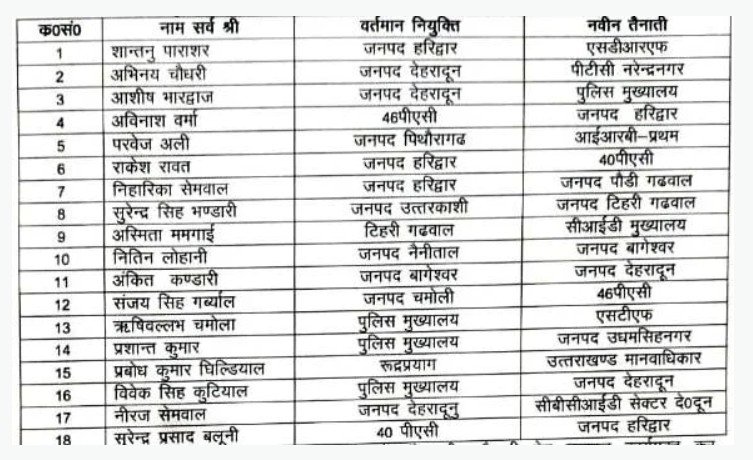 क०सं० नाम सर्व श्री वर्तमान नियुक्ति नवीन तैनाती
1 शान्तनु पाराशर जनपद हरिद्वार एसडीआरएफ
2 अभिनय चौधरी जनपद देहरादून पीटीसी नरेन्द्रनगर
3 आशीष भारद्वाज जनपद देहरादून पुलिस मुख्यालय
4 अविनाश वर्मा 46पीएसी जनपद हरिद्वार
5 परवेज अली जनपद पिथौरागढ आईआरबी–प्रथम
6 राकेश रावत जनपद हरिद्वार 40पीएसी
7 निहारिका सेमवाल जनपद हरिद्वार जनपद पौडी गढवाल
8 सुरेन्द्र सिह भण्डारी जनपद उत्तरकाशी जनपद टिहरी गढवाल
9 अस्मिता ममगाई टिहरी गढवाल सीआईडी मुख्यालय
10 नितिन लोहानी जनपद नैनीताल जनपद बागेश्वर
11 अंकित कण्डारी जनपद बागेश्वर जनपद देहरादून
12 संजय सिह गर्ब्याल जनपद चमोली 46पीएसी
13 ऋषिवल्लभ चमोला पुलिस मुख्यालय एसटीएफ
14 प्रशान्त कुमार पुलिस मुख्यालय जनपद उधमसिहनगर
15 प्रबोध कुमार घिल्डियाल रूद्रप्रयाग उत्तराखण्ड मानवाधिकार
16 विवेक सिह कुटियाल पुलिस मुख्यालय जनपद देहरादून
17 नीरज सेमवाल जनपद देहरादुनु सीबीसीआईडी सेक्टर दे०दून
18 सुरेन्द्र प्रसाद बलूनी 40 पीएसी जनपद हरिद्वार